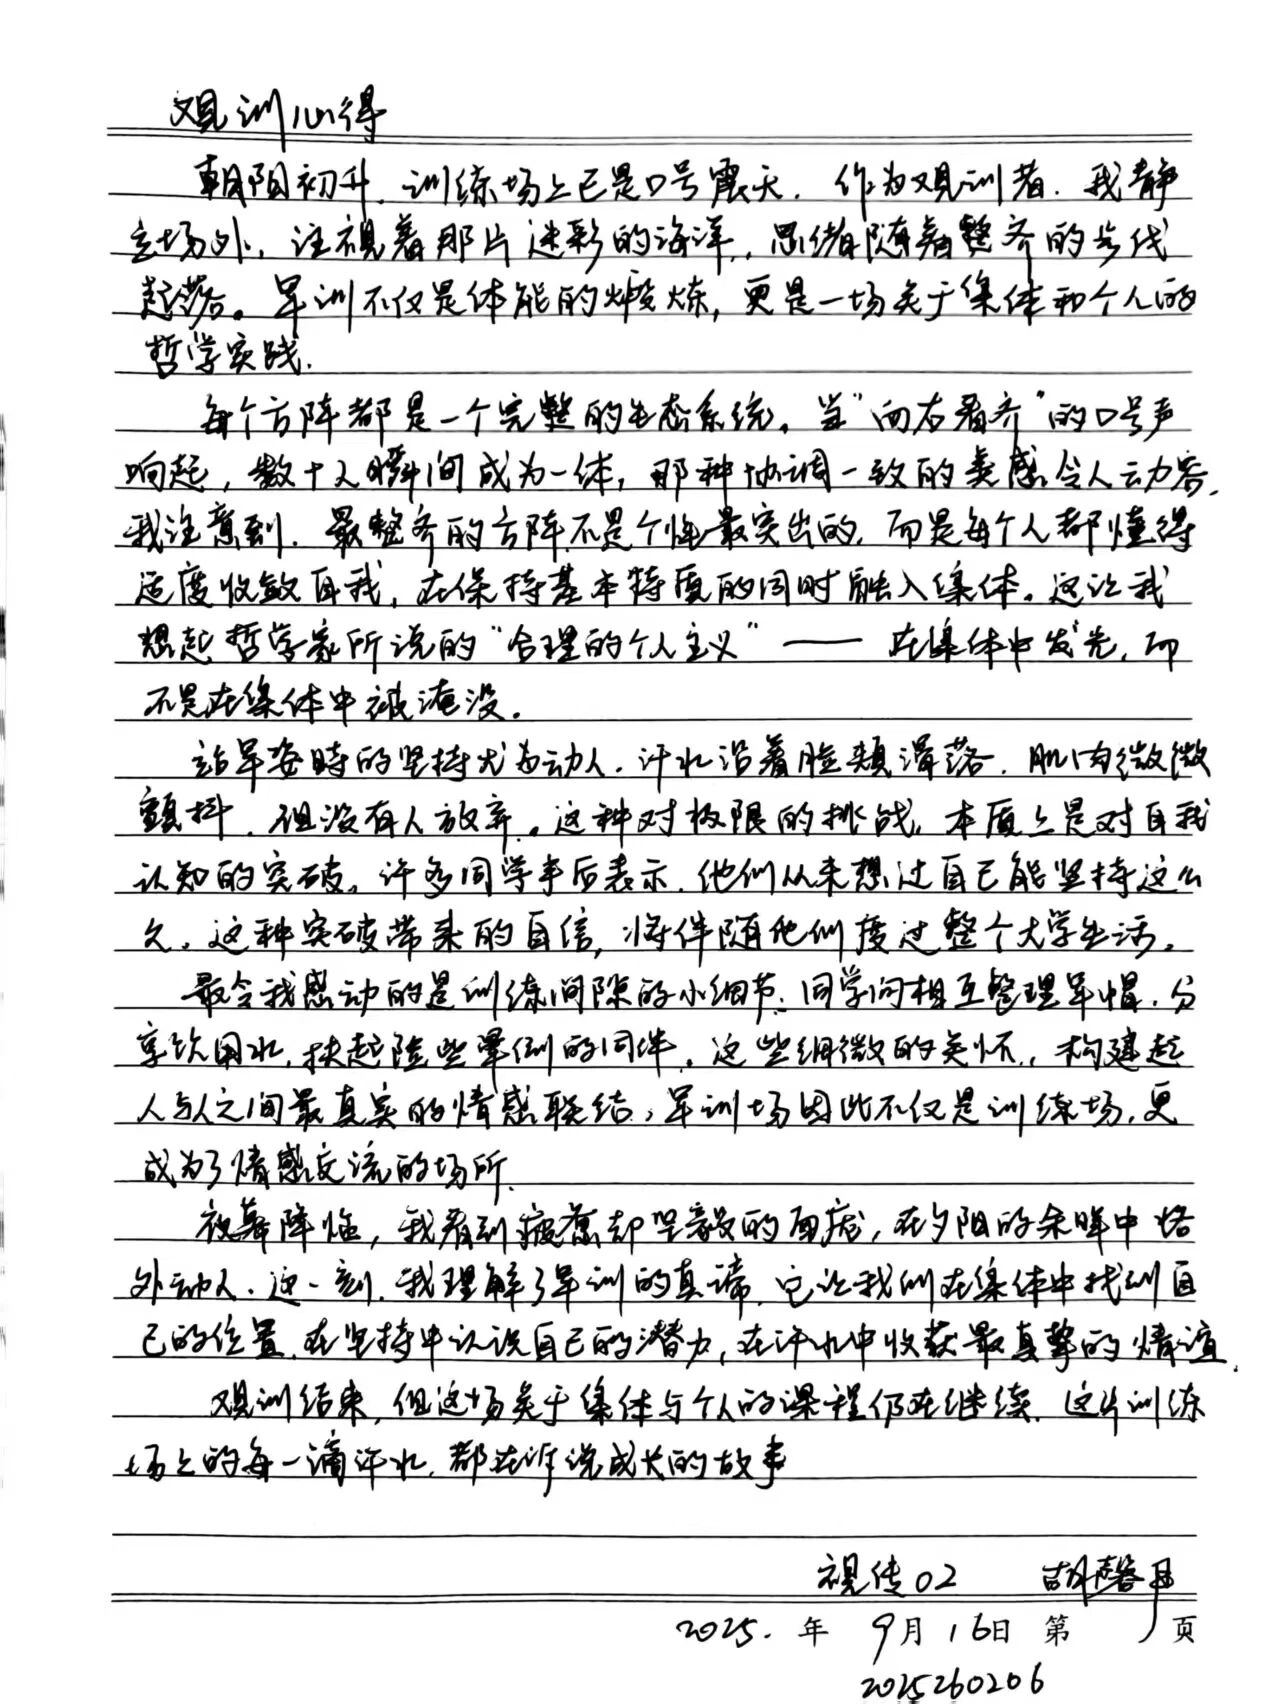 观训心得
朝阳初升，训练场上已是口号震天．作为观训者．我静
立场外，注视着那片迷彩的海洋，思绪随着整齐的步伐
起落。军训不仅是体能的煅炼，更是一场关于集体和个人的
哲学实践．
每个方阵都是一个完整的生态系统。当"向右看齐"的口号声
响起，数十人瞬间成为一体，那种协调一致的美感令人动容．
我注意到．最整齐的方阵不是个性最突出的，而是每个人都懂得
适度收敛自我，在保持基本特质的同时融入集体。这让我
想起哲学家所说的"合理的个人主义"——在集体中发光，而
不是在集体中被淹没。
站军姿时的坚持尤为动人．汗水沿着脸颊滑落．肌肉微微
颤抖．但没有人放弃。这种对极限的挑战，本质上是对自我
认知的突破。许多同学事后表示．他们从未想过自己能坚持这么
久。这种突破带来的自信，将伴随他们度过整个大学生活。
最令我感动的是训练间隙的小细节．同学间相互整理军帽．分
享饮用水，扶起险些晕倒的同伴。这些细微的关怀，构建起
人与人之间最真实的情感联结，军训场因此不仅是训练场，更
成为了情感交流的场所．
夜幕降临，我看到疲惫却坚毅的面庞，在夕阳的余晖中格
外动人．这一刻．我理解了军训的真谛，它让我们在集体中找到自
己的位置，在坚持中认识自己的潜力，在汗水中收获最真挚的情谊．
观训结束，但这场关于集体与个人的课程仍在继续．这片训练
场上的每一滴汗水．都在诉说成长的故事
视传02 胡馨月
2025．年 9月16日 第 页
2025260206